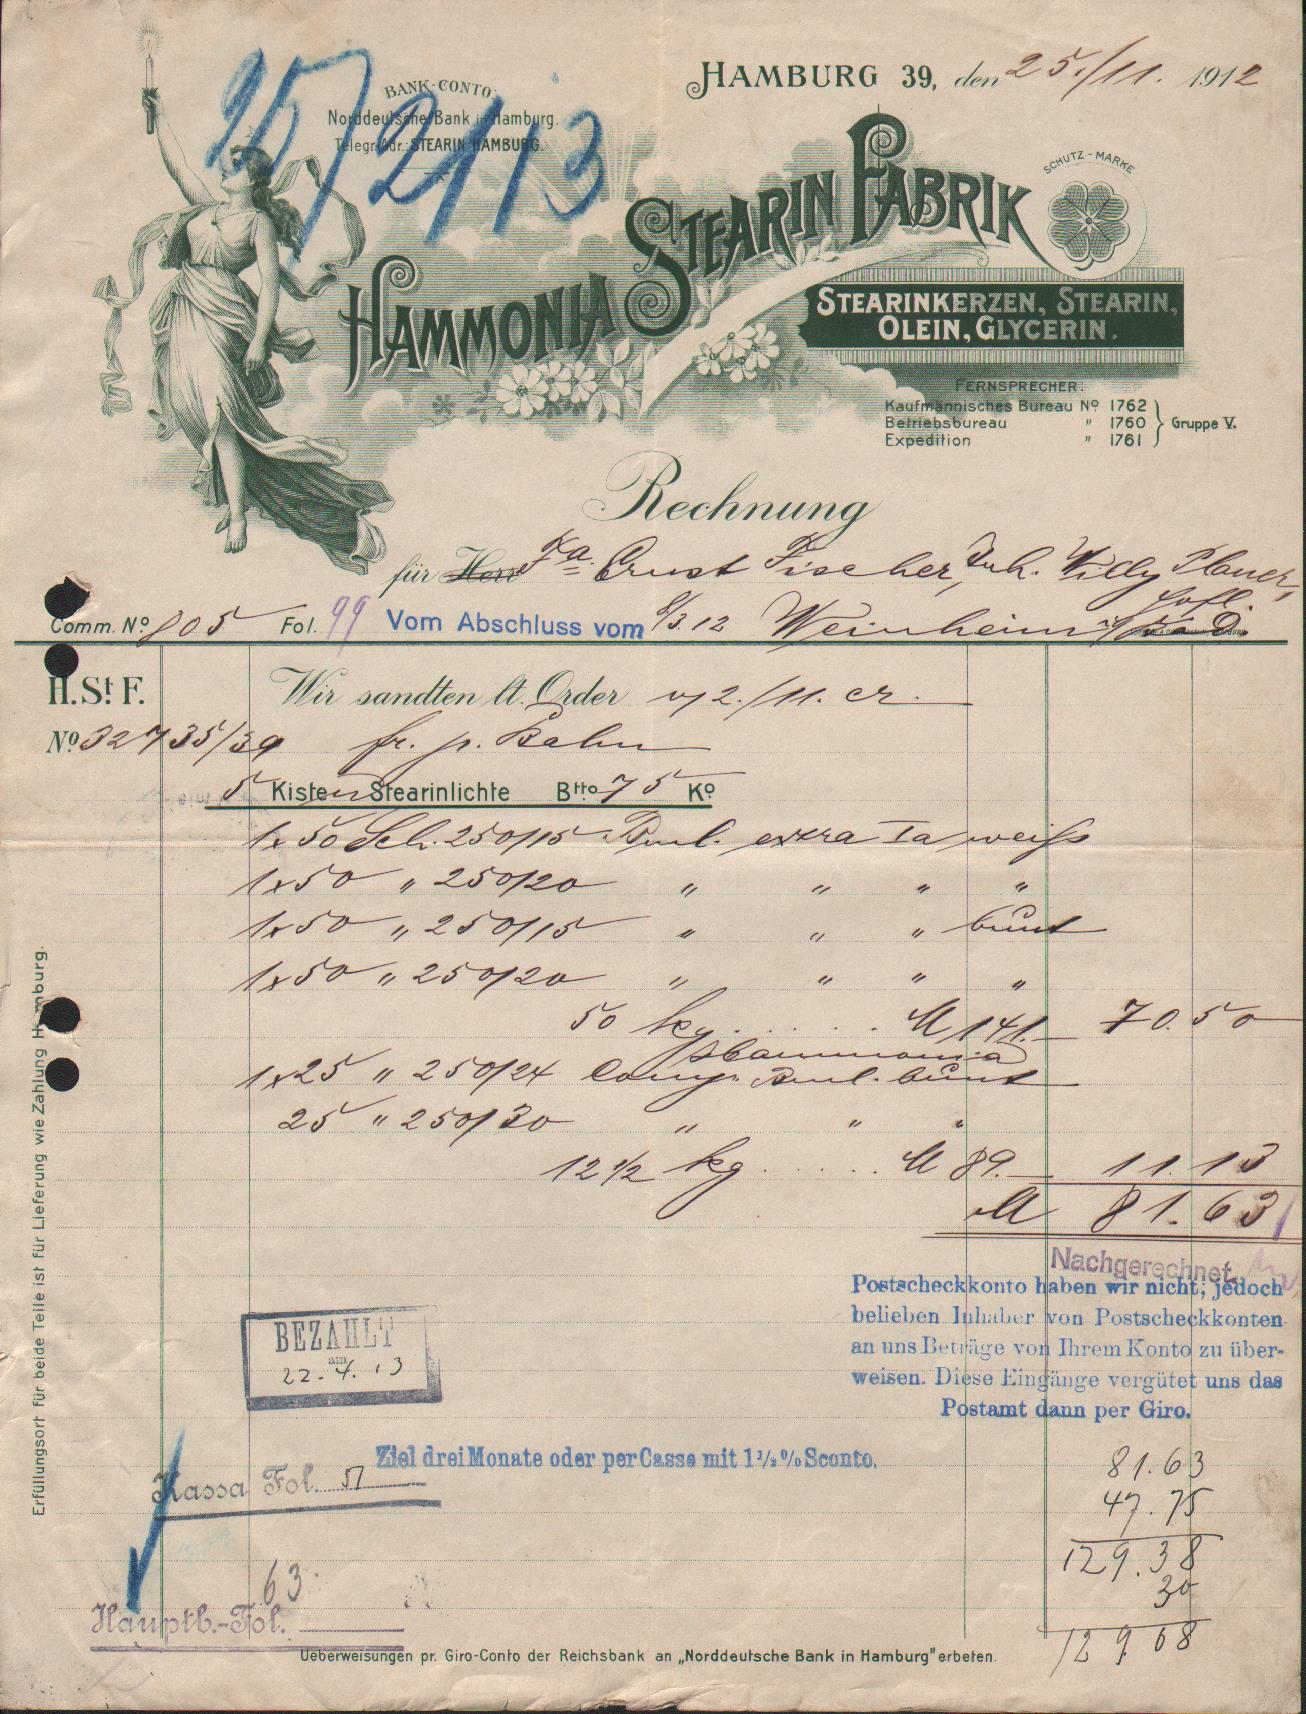 BANK-CONTO:
Norddeutsche Bank in Hamburg.
Telegr.-Adr.: STEARIN HAMBURG.
25/2 13
HAMBURG 39, den 25./11. 1912
HAMMONIA STEARIN FABRIK
SCHUTZ-MARKE
STEARINKERZEN, STEARIN,
OLEIN, GLYCERIN.
FERNSPRECHER:
Kaufmännisches Bureau No 1762
Betriebsbureau " 1760 Gruppe V.
Expedition " 1761
Rechnung
für Herr Fa. Ernst Fischer, Inh. Willy
Comm. No. 805 Fol. 99 Vom Abschluss vom 8/3.12 Weinheim
H. St. F. Wir sandten lt. Order v/2./11. cr.
No 32735/39 fr. p. Bahn
5 Kisten Stearinlichte Btto 75 Ko
1x50 Sch. 250/15 extra Ia weiß
1x50 " 250/20 " " " "
1x50 " 250/15 " " " bunt
1x50 " 250/20 " " " "
50 kg ..... M 141.— 70.50
Hammonia
1x25 " 250/24 Comp. bunt
25 " 250/30 " " "
12 1/2 kg ..... M 89.— 11.13
M 81.63
Nachgerechnet
Postscheckkonto haben wir nicht; jedoch
belieben Inhaber von Postscheckkonten
an uns Beträge von Ihrem Konto zu über-
weisen. Diese Eingänge vergütet uns das
Postamt dann per Giro.
BEZAHLT
am
22.4.13
Ziel drei Monate oder per Casse mit 1½% Sconto.
Kassa Fol. 51
81.63
47.75
129.38
30
129.08
63
Hauptb.-Fol.
Ueberweisungen pr. Giro-Conto der Reichsbank an „Norddeutsche Bank in Hamburg" erbeten.
Erfüllungsort für beide Teile ist für Lieferung wie Zahlung Hamburg.